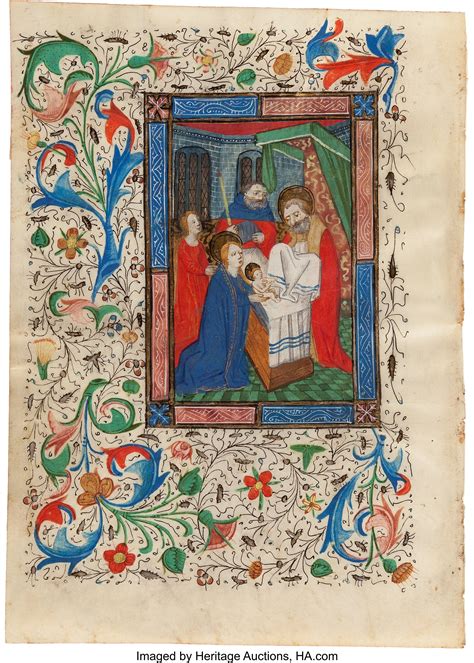 Imaged by Heritage Auctions, HA.com